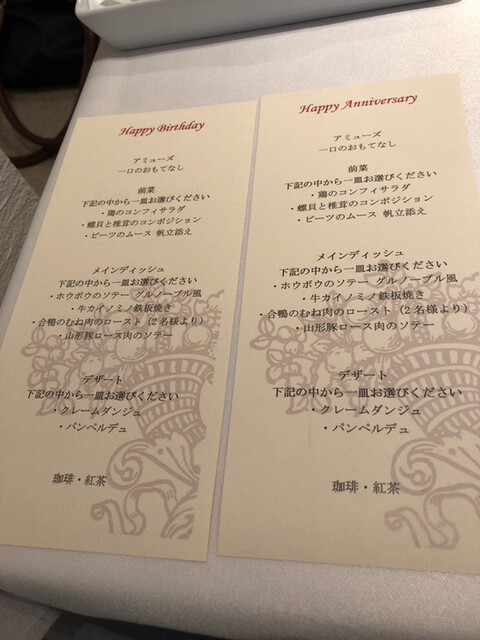 Happy Birthday
アミューズ
一口のおもてなし
前菜
下記の中から一皿お選びください
・鶏のコンフィサラダ
・螺貝と椎茸のコンポジション
・ビーツのムース 帆立添え
メインディッシュ
下記の中から一皿お選びください
・ホウボウのソテー グルノーブル風
・牛カイノミノ鉄板焼き
・合鴨のむね肉のロースト (2名様より)
・山形豚ロース肉のソテー
デザート
下記の中から一皿お選びください
・クレームダンジュ
・パンペルデュ
珈琲・紅茶
Happy Anniversary
アミューズ
一口のおもてなし
前菜
下記の中から一皿お選びください
・鶏のコンフィサラダ
・螺貝と椎茸のコンポジション
・ビーツのムース 帆立添え
メインディッシュ
下記の中から一皿お選びください
・ホウボウのソテー グルノーブル風
・牛カイノミノ鉄板焼き
・合鴨のむね肉のロースト (2名様より)
・山形豚ロース肉のソテー
デザート
下記の中から一皿お選びください
・クレームダンジュ
・パンペルデュ
珈琲・紅茶